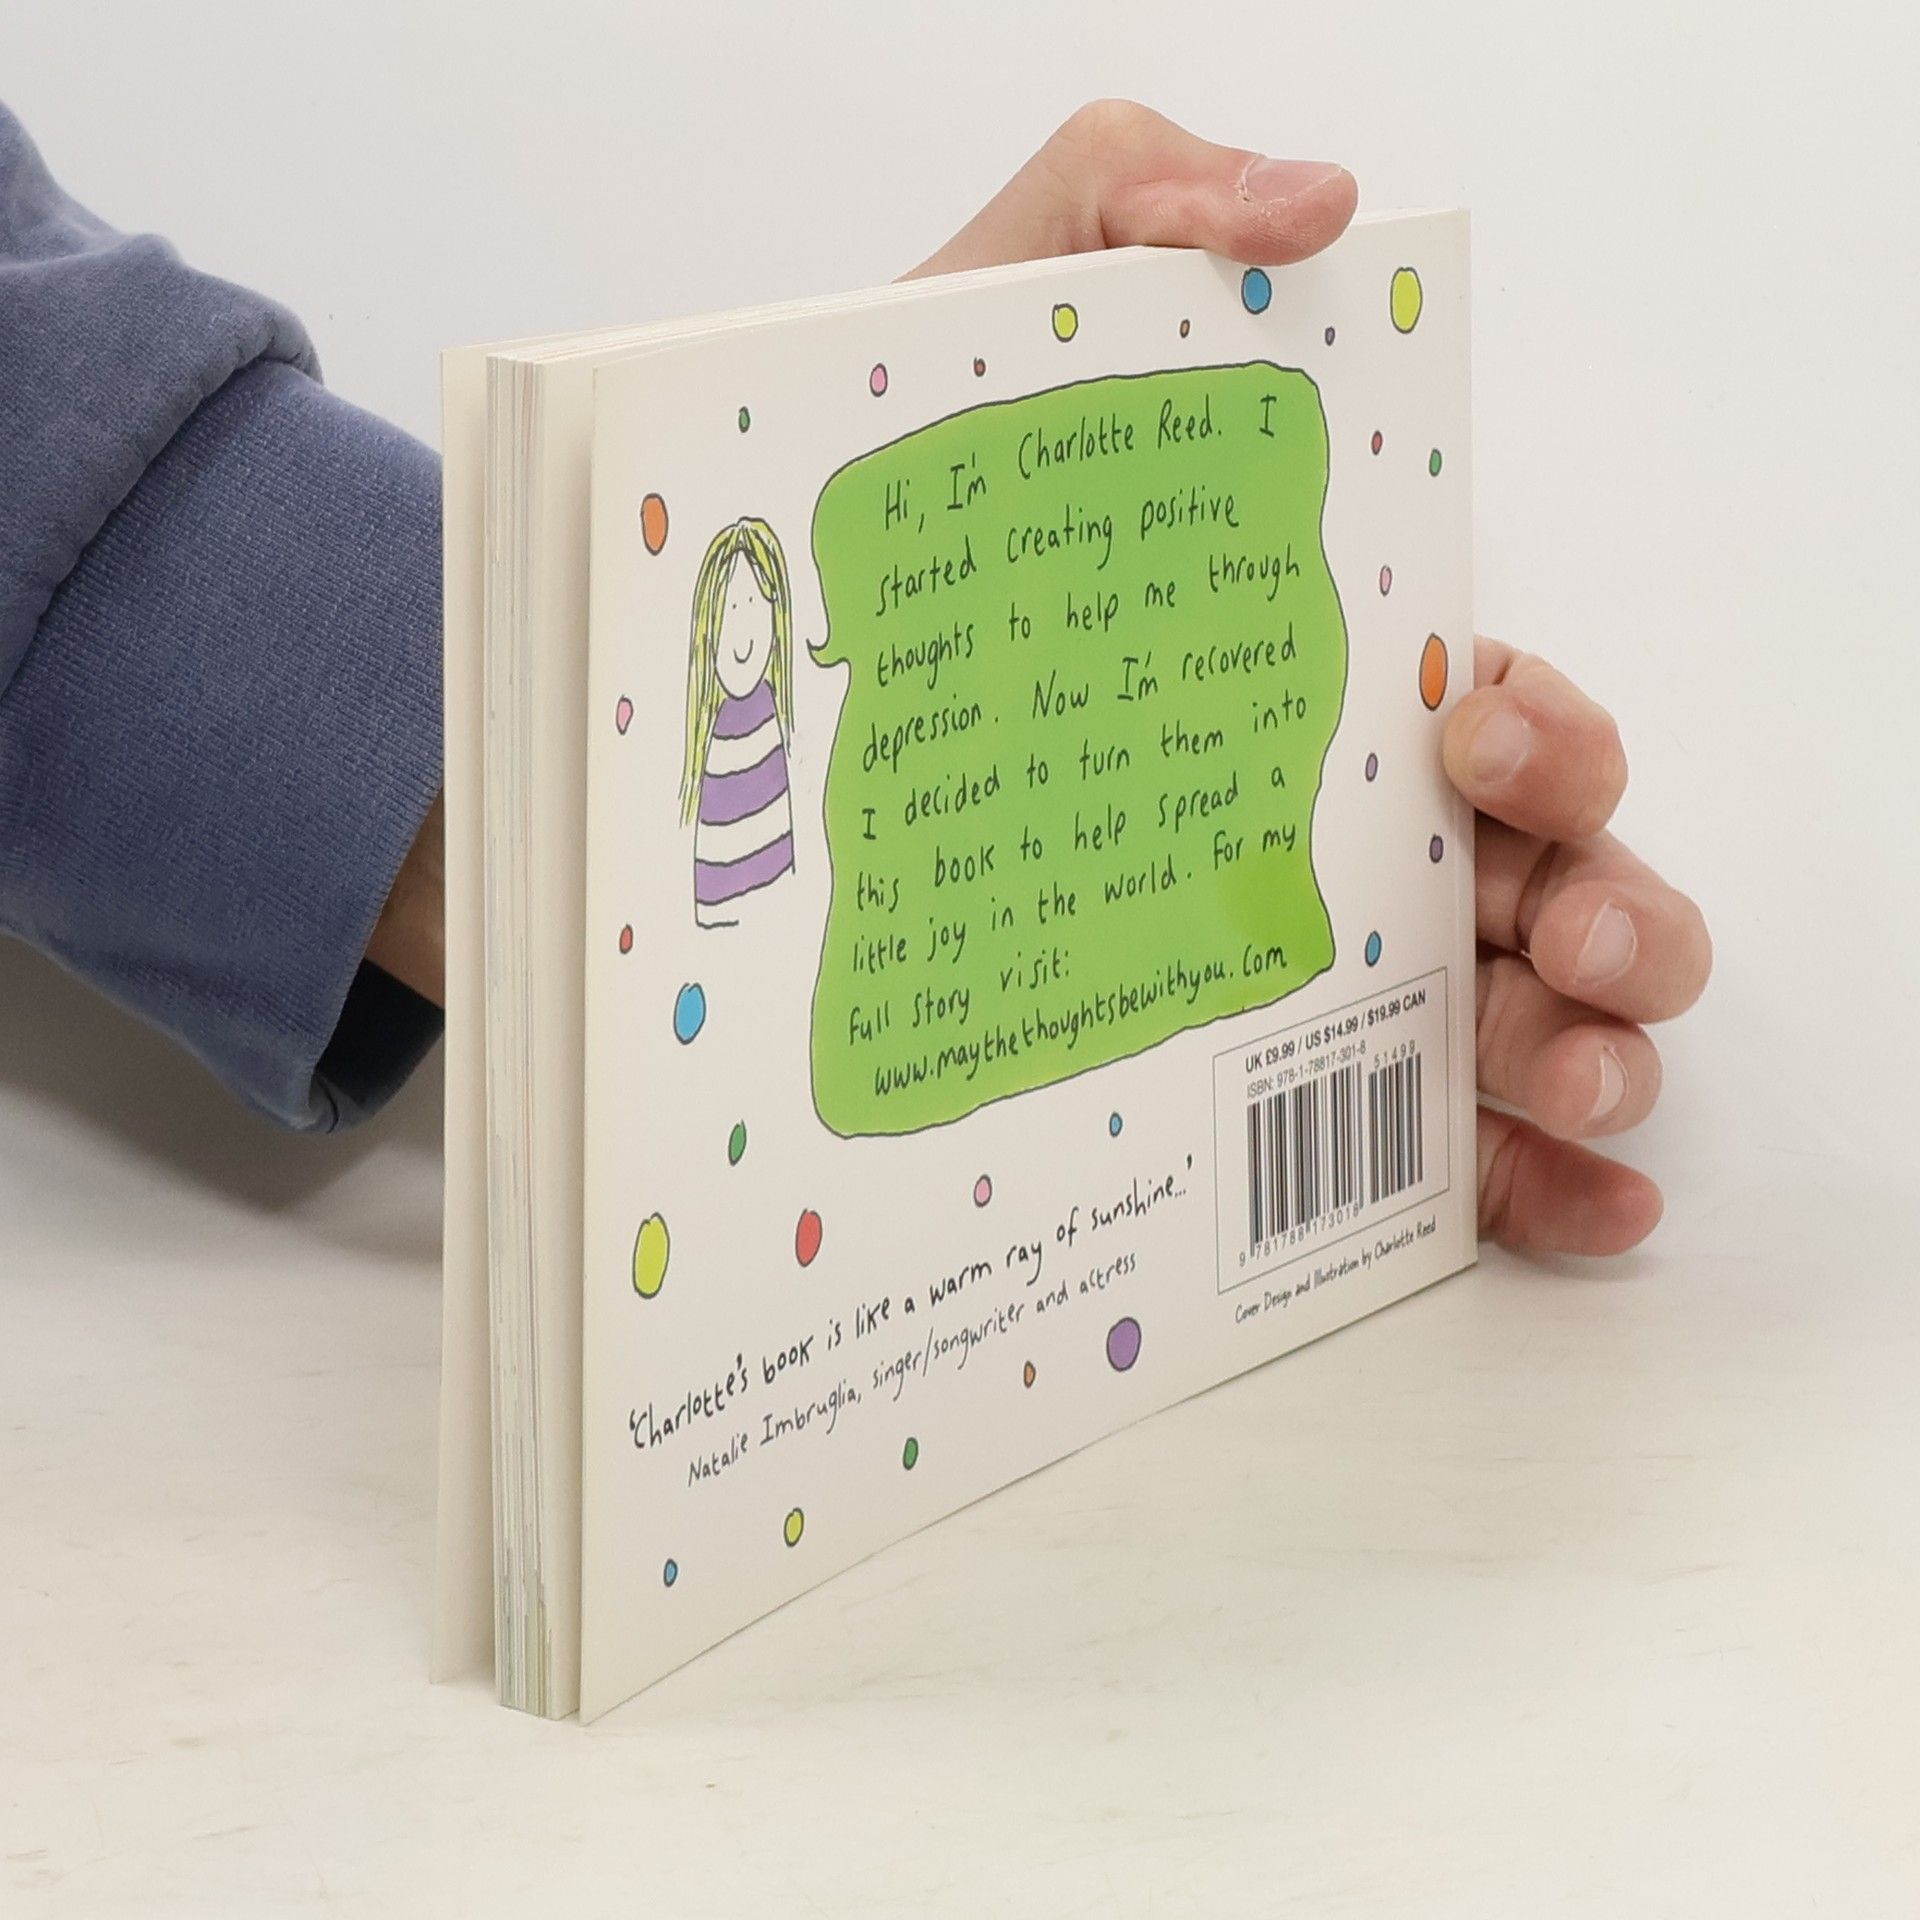 Hi, I'm Charlotte Reed. I
started creating positive
thoughts to help me through
depression. Now I'm recovered
I decided to turn them into
this book to help spread a
little joy in the world. For my
full story visit:
www.maythethoughtsbewithyou.com
'Charlotte's book is like a warm ray of sunshine...'
Natalie Imbruglia, singer/songwriter and actress
UK £9.99 / US $14.99 / $19.99 CAN
ISBN: 978-1-78817-301-8
51499
9 781788 173018
Cover Design and Illustration by Charlotte Reed